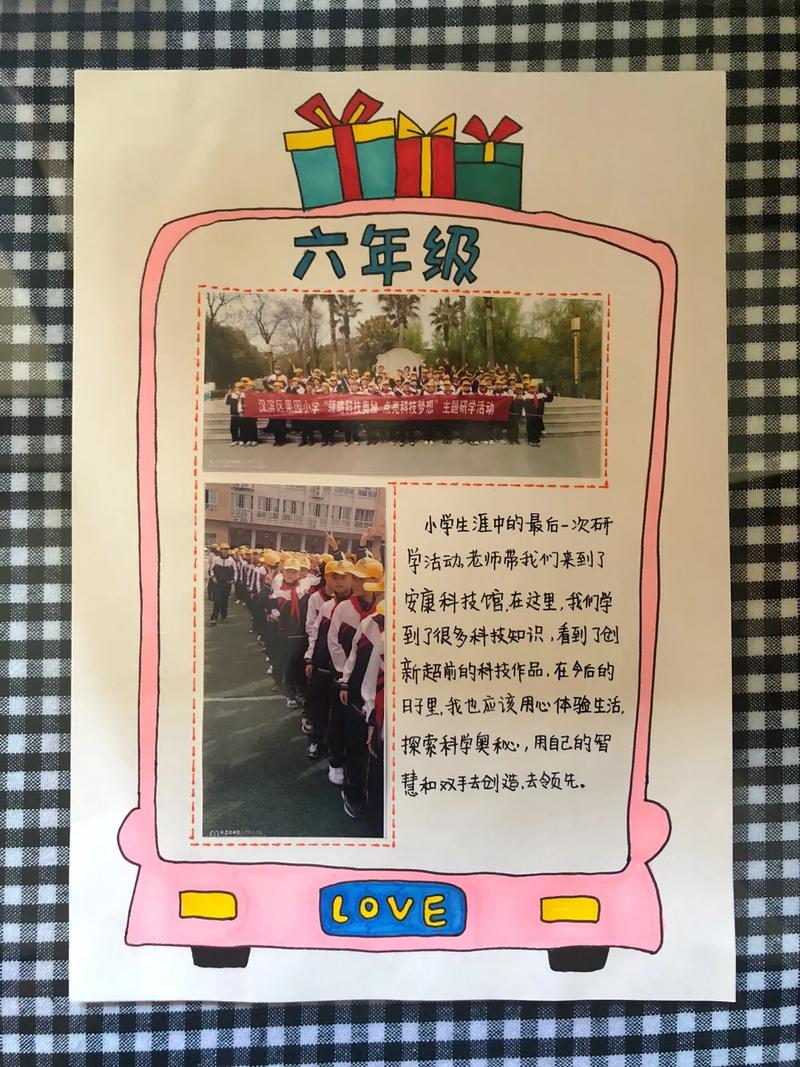 六年级
汉滨区果园小学“领略科技奥秘 点亮科技梦想”主题研学活动
小学生涯中的最后一次研
学活动,老师带我们来到了
安康科技馆,在这里,我们学
到了很多科技知识,看到了创
新超前的科技作品,在今后的
日子里,我也应该用心体验生活,
探索科学奥秘,用自己的智
慧和双手去创造,去领先。
LOVE